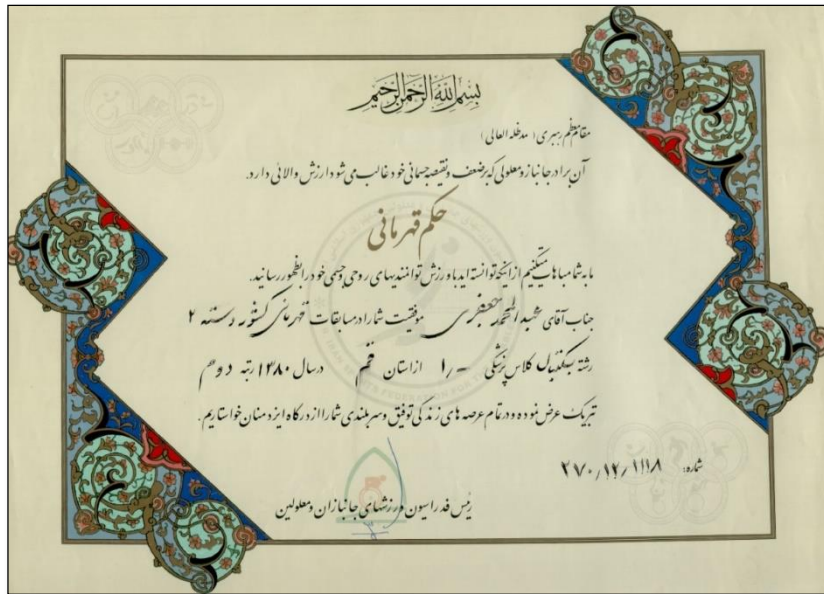 بسم الله الرحمن الرحیم
مقام معظم رهبری (مدظله العالی)
آن برادر جانباز و معلولی که بر ضعف و نقیصه جسمانی خود غالب می شود ارزش والائی دارد.
حکم قهرمانی
ما به شما مباهات میکنیم از اینکه توانسته اید با ورزش توانمندیهای روحی و جسمی خود را بظهور رسانید.
جناب آقای جعفری موفقیت شما را در مسابقات قهرمانی کشور دسته ۲
رشته بسکتبال کلاس پزشکی ۱/۰ از استان قم در سال ۱۳۸۰ رتبه دوم
تبریک عرض نموده و در تمام عرصه های زندگی توفیق و سربلندی شما را از درگاه ایزد منان خواستاریم.
شماره: ۲۷۰/۱۲/۱۱۱۸
رئیس فدراسیون ورزشهای جانبازان و معلولین